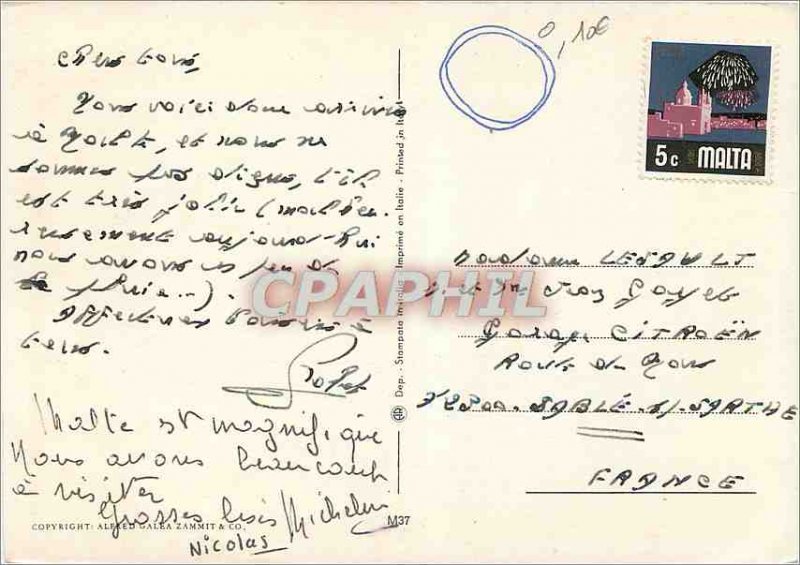 Chers tous,
Nous voici donc arrivés
à Malte, et nous ne
sommes pas déçus, l'île
est très jolie (malheu-
reusement aujourd'hui
nous avons un peu de
pluie...).
Affectueux baisers à
tous.
Malte est magnifique
Nous avons beaucoup
à visiter
Grosses bises Micheline
Nicolas
COPYRIGHT: ALFRED GALEA ZAMMIT & CO.
M37
Dep. - Stampato in Italia - Imprimé en Italie - Printed in Italy
CPAPHIL
0,10€
5c MALTA
Madame LESAULT
Garage CITROËN
Route du Mans
72300. SABLÉ. S/. SARTHE
FRANCE